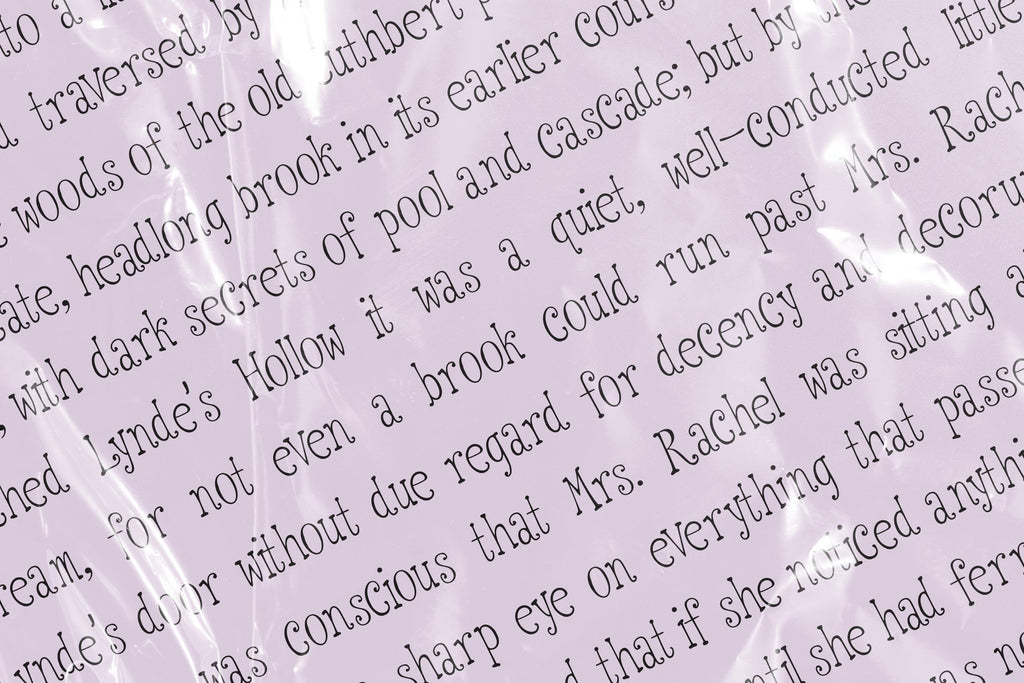 to a
traversed by
woods of the old Cuthbert p
ate, headlong brook in its earlier cours
, with dark secrets of pool and cascade; but by the
hed Lynde's Hollow it was a quiet, well–conducted little
ream, for not even a brook could run past Mrs. Rach
ynde's door without due regard for decency and decoru
was conscious that Mrs. Rachel was sitting a
sharp eye on everything that passe
d that if she noticed anythi
ntil she had ferr
as no